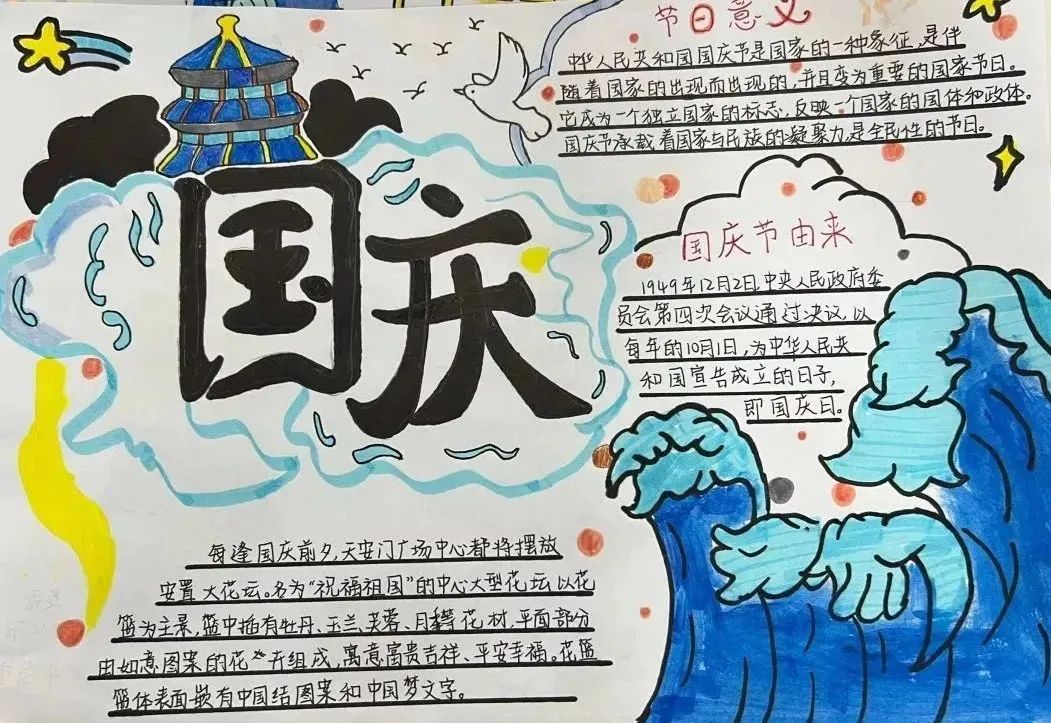 国庆
节日意义
中华人民共和国国庆节是国家的一种象征,是伴
随着国家的出现而出现的,并且变为重要的国家节日。
它成为一个独立国家的标志,反映一个国家的国体和政体。
国庆节承载着国家与民族的凝聚力,是全民性的节日。
国庆节由来
1949年12月2日,中央人民政府委
员会第四次会议通过决议,以
每年的10月1日,为中华人民共
和国宣告成立的日子,
即国庆日。
每逢国庆前夕,天安门广场中心都将摆放
安置大花坛。名为“祝福祖国”的中心大型花坛以花
篮为主景,篮中插有牡丹、玉兰、芙蓉、月季花材,平面部分
由如意图案的花卉组成,寓意富贵吉祥、平安幸福。花篮
篮体表面嵌有中国结图案和中国梦文字。